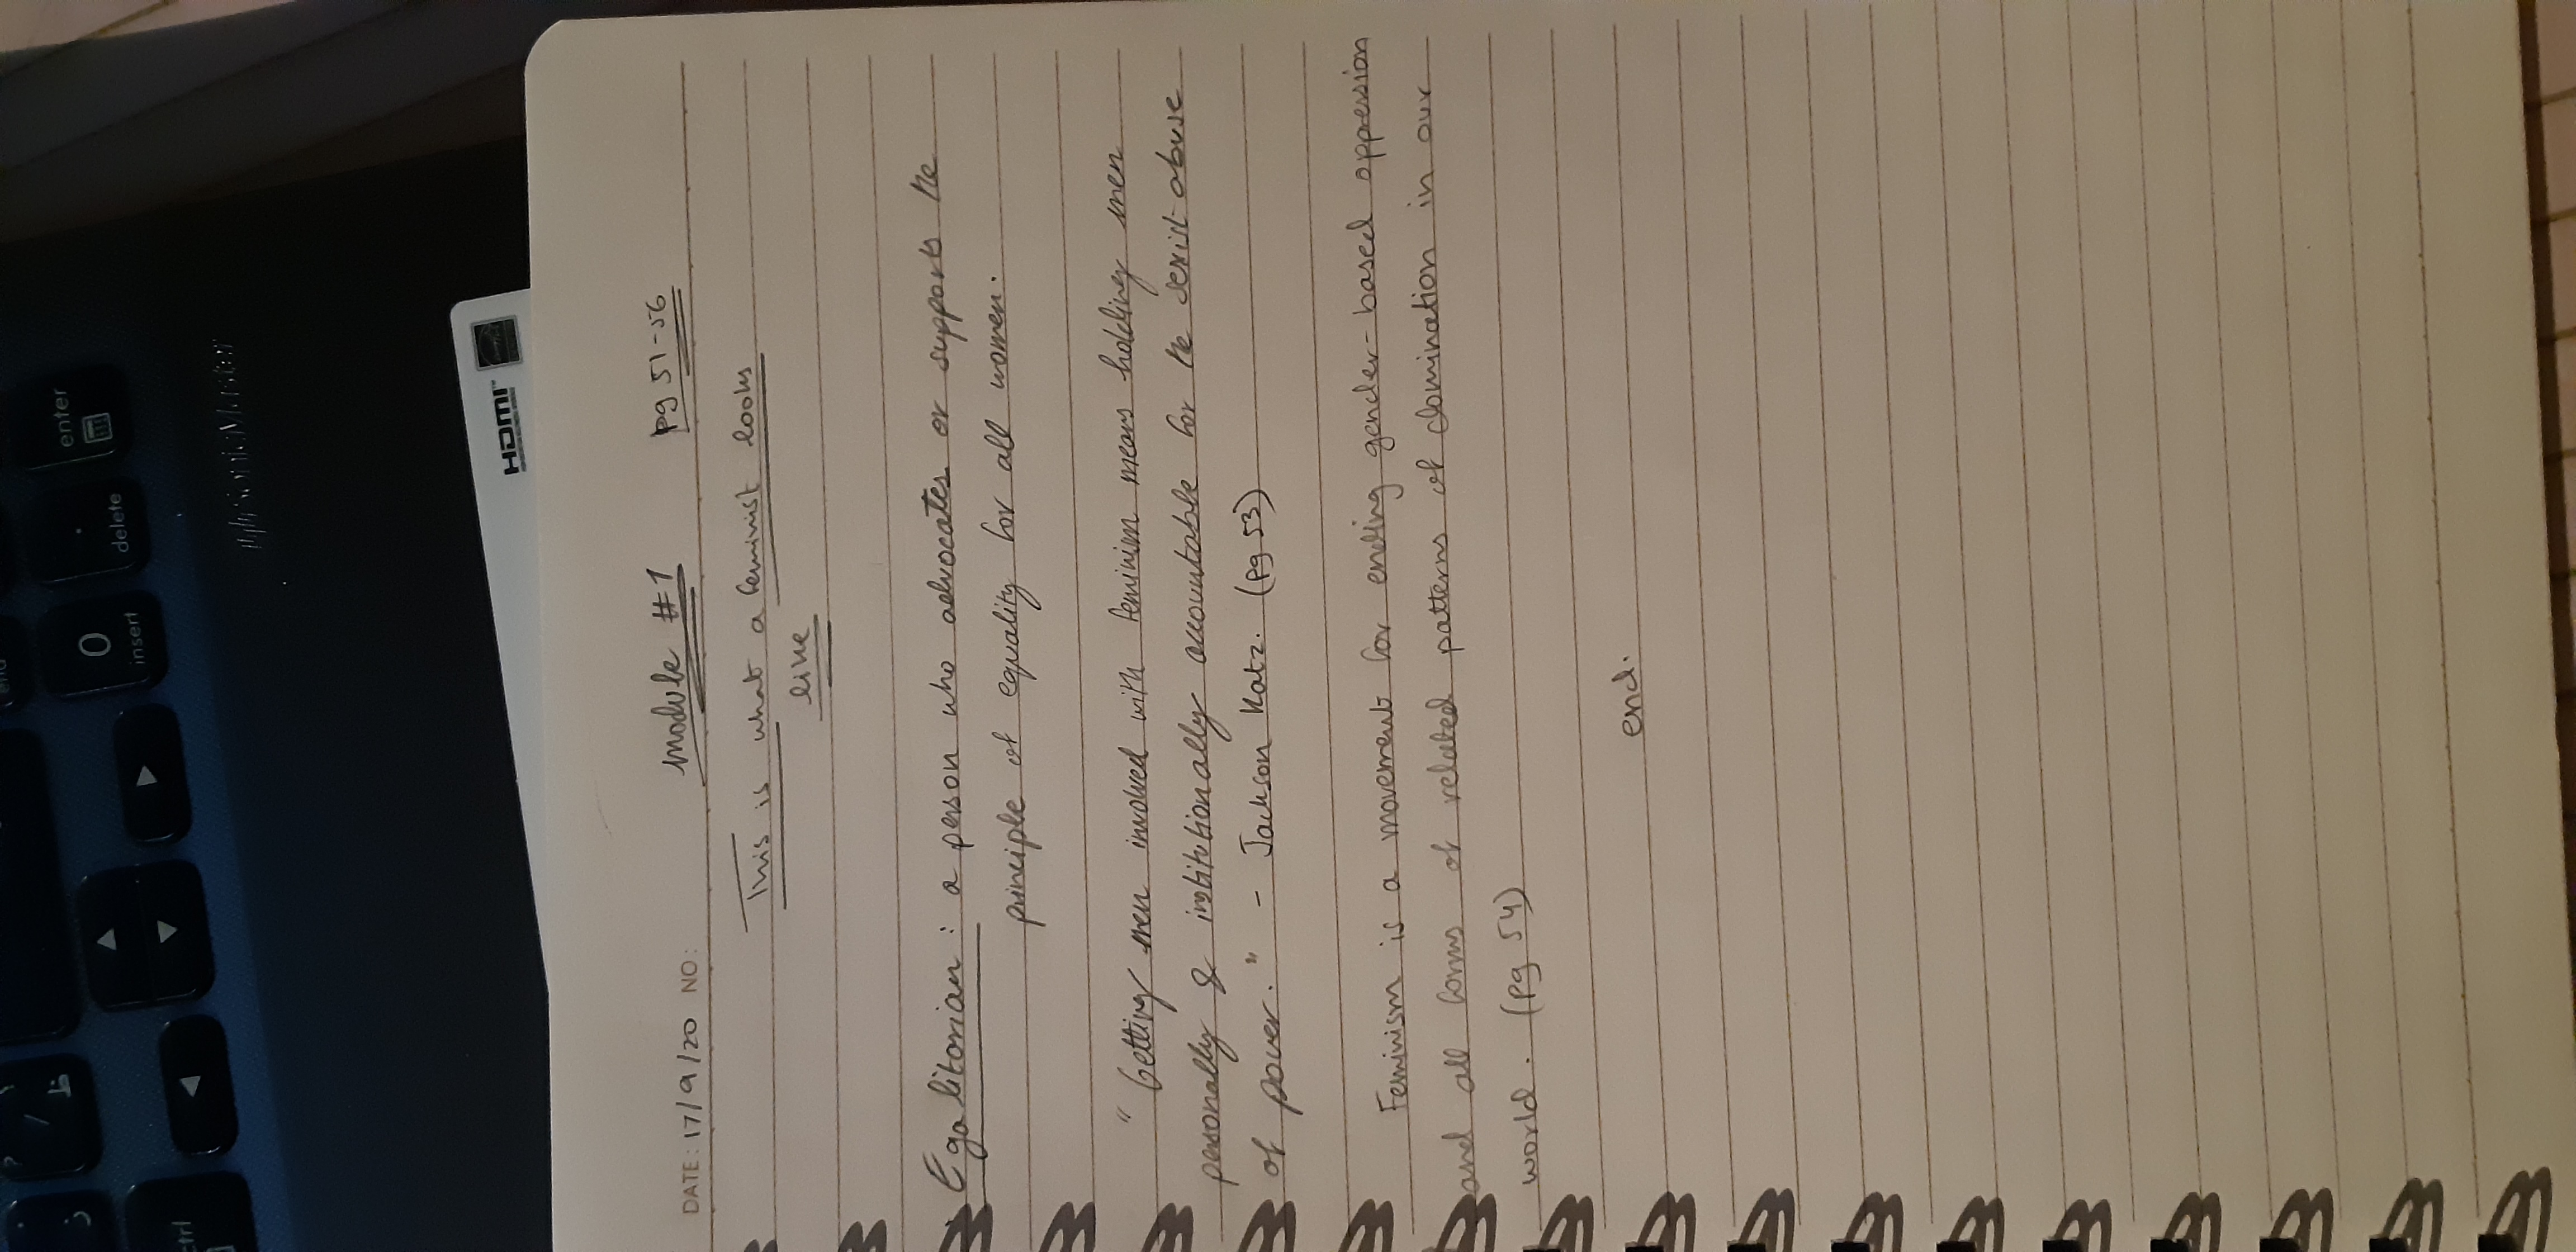 ز
? / ظ
end
0
insert
.
delete
enter
ctrl
SonicMaster
HDMI™
module #1 pg 51-56
DATE: 17/9/20 NO:
This is what a feminist looks
like
Egalitarian : a person who advocates or supports the
principle of equality for all women.
" Getting men involved with feminism means holding men
personally & institutionally accountable for the sexist abuse
of power. " - Jackson Katz. (pg 53)
Feminism is a movement for ending gender-based oppression
and all forms of related patterns of domination in our
world. (pg 54)
end.